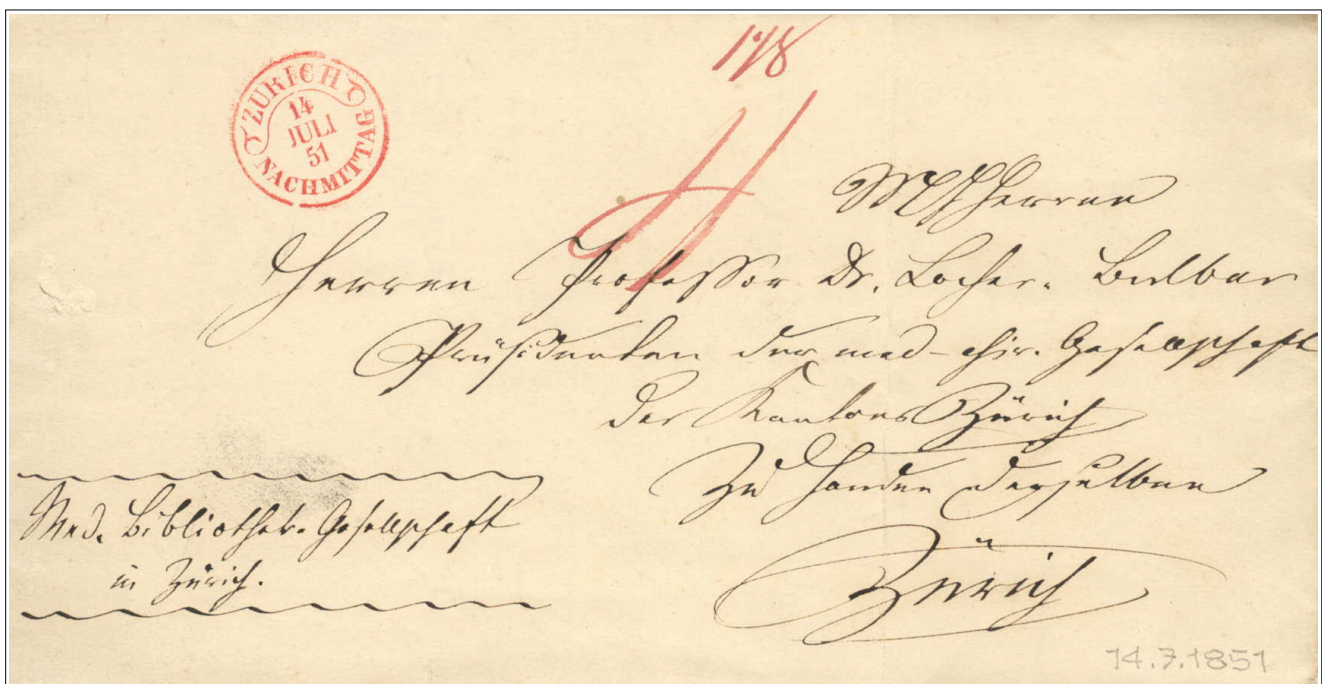 ZÜRICH
14
JULI
51
NACHMITTAG
Herren Professor Dr. Locher-Balber
Präsidenten der med-chir. Gesellschaft
des Kantons Zürich
zu Handen derselben
Zürich
Med. Bibliothek-Gesellschaft
in Zürich.
14.7.1851